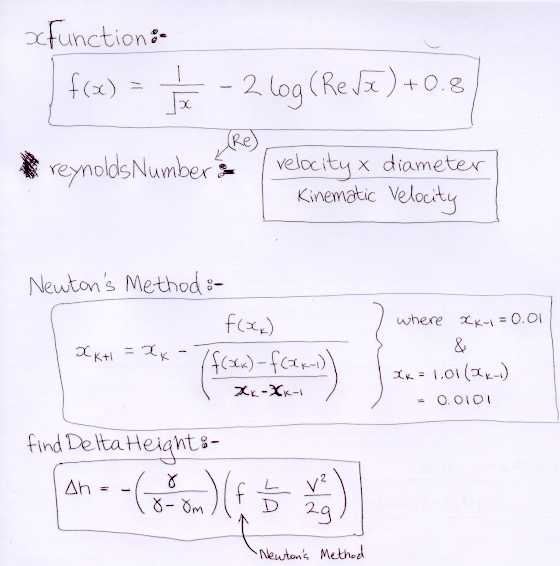 xfunction:-
f(x) = 1/√x - 2 log(Re√x) + 0.8
(Re)
reynoldsNumber:- velocity x diameter / Kinematic Velocity
Newton's Method:-
x_{K+1} = x_K - f(x_K) / ((f(x_K) - f(x_{K-1})) / (x_K - x_{K-1})) } where x_{K-1} = 0.01
&
x_K = 1.01(x_{K-1})
= 0.0101
findDeltaHeight:-
Δh = -(γ / (γ - γ_m)) (f L/D V²/2g)
Newton's Method